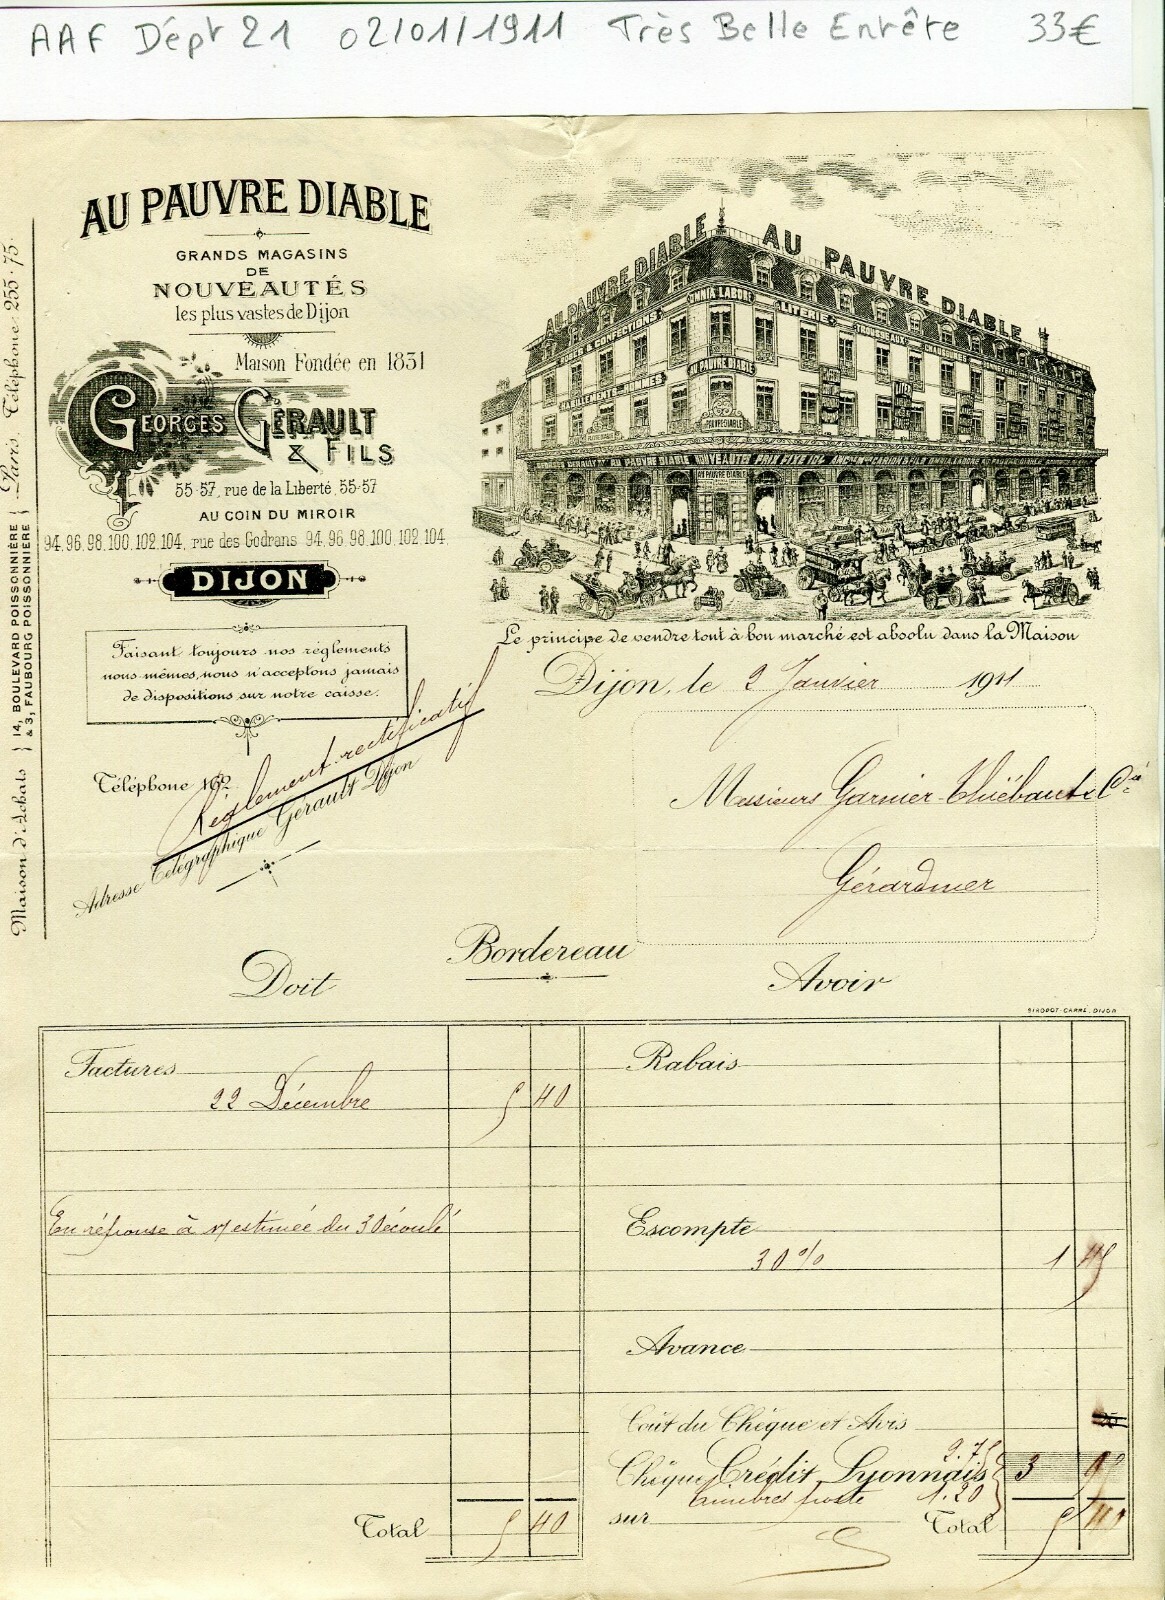 AAF Dépt 21 02/01/1911 Très Belle Entête 33€
AU PAUVRE DIABLE
GRANDS MAGASINS
DE
NOUVEAUTÉS
les plus vastes de Dijon
Maison Fondée en 1831
GEORGES GÉRAULT
& FILS
55-57, rue de la Liberté, 55-57
AU COIN DU MIROIR
94, 96, 98, 100, 102, 104, rue des Godrans 94, 96, 98, 100, 102, 104
DIJON
Faisant toujours nos règlements
nous mêmes, nous n'acceptons jamais
de dispositions sur notre caisse.
Téléphone 162
Règlement rectificatif
Adresse Télégraphique Gérault Dijon
Maison d'Achats } 14, BOULEVARD POISSONNIÈRE & 3, FAUBOURG POISSONNIÈRE } Paris, Téléphone: 255-75
AU PAUVRE DIABLE AU PAUVRE DIABLE
OMNIA LABOR
& CONFECTIONS LITERIE TROUSSEAUX
HABILLEMENTS HOMMES AU PAUVRE DIABLE
GEORGES GERAULT AU PAUVRE DIABLE NOUVEAUTÉ PRIX FIXE
Le principe de vendre tout à bon marché est absolu dans la Maison
Dijon, le 2 Janvier 1911
Messieurs Garnier-Thiébaut & Cie
Gérardmer
Bordereau
Doit Avoir
GIRODOT-CARRÉ, DIJON
Factures Rabais
22 Décembre 5 40
En réponse à v/ estimée du 30 écoulé
Escompte
30% 1 45
Avance
Coût du Chèque et Avis
Chèque Crédit Lyonnais 2.75 3 9
timbres poste 1.20
sur
Total 5 40 Total 5 40